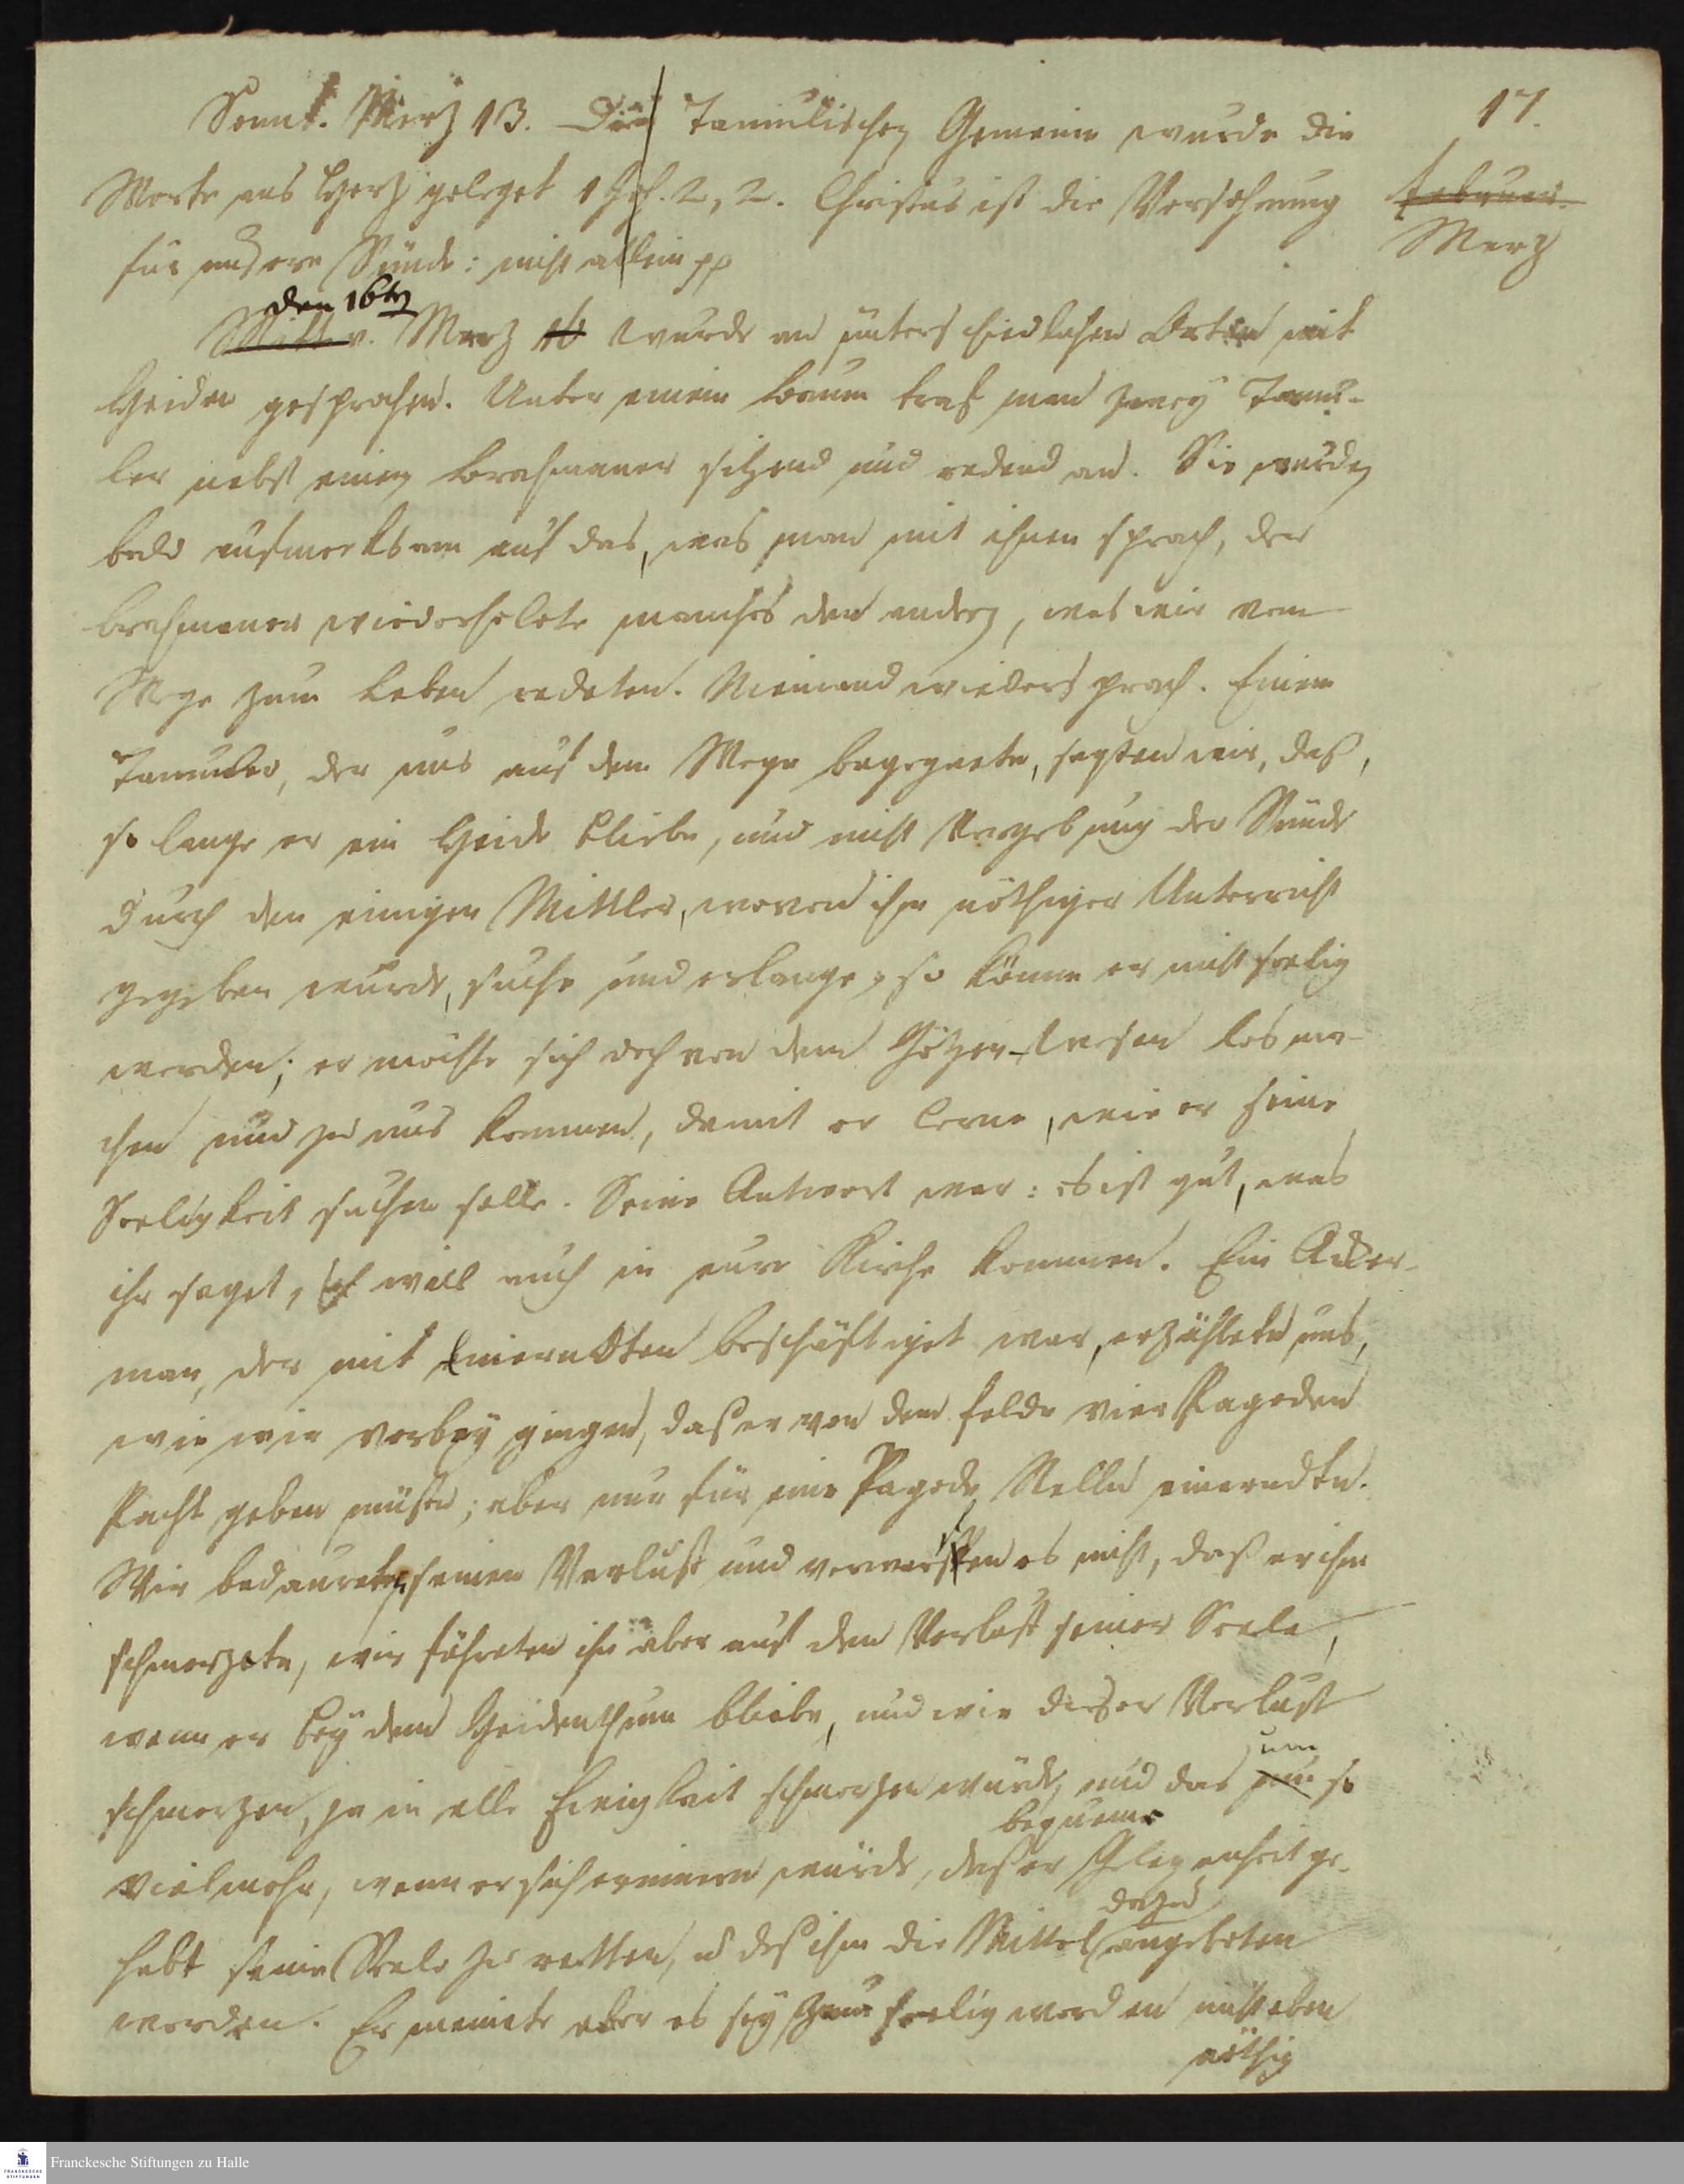 17.
Sonnt. Merz 13. Der Tamulischen Gemeine wurde die
Worte ans Herz geleget 1 Joh. 2, 2. Christus ist die Versöhnung
Februar.
Merz
für unsere Sünde: nicht allein pp
den 16ten
Mittw. Merz 16 wurde an unterschiedlichen Orten mit
Heiden gesprochen. Unter einem Baum traf man zwey Tamu-
ler nebst einem Brahmaner sitzend und redend an. Sie wurden
bald aufmerksam auf das, was man mit ihnen sprach, der
Brahmaner wiederholete manches den andern, was wir vom
Wege zum Leben redeten. Niemand wiedersprach. Einem
Tamuler, der uns auf dem Wege begegnete, sagten wir, daß,
so lange er ein Heide bliebe, und nicht Vergebung der Sünde
durch den einigen Mittler, wovon ihm nöthiger Unterricht
gegeben wurde, suche und erlange, so könne er nicht seelig
werden; er möchte sich doch von dem Götzen-Wesen los ma-
chen und zu uns kommen, damit er lerne, wie er seine
Seeligkeit suchen solle. Seine Antwort war: es ist gut, was
ihr saget, ich will auch in eure Kirche kommen. Ein Acker-
man, der mit Einerndten beschäftiget war, erzählete uns,
wie wir vorbey gingen, daß er von dem Felde vier Pagoden
Pacht geben müste; aber nur für eine Pagode Nelli einerndte.
Wir bedaureten seinen Verlust und verwarfen es nicht, daß er ihn
schmerzete, wir führeten ihn aber auf den Verlust seiner Seele,
wenn er bey dem Heidenthum bliebe, und wie dieser Verlust
schmerzen, ja in alle Ewigkeit schmerzen würde, und das um nun so
vielmehr, wenn er sich erinnern würde, daß er bequeme Gelegenheit ge-
habt seine Seele zu retten, u. daß ihm die Mittel dazu angeboten
worden. Er meinte aber es sey zum seelig werden nicht eben
nöthig
Franckesche Stiftungen zu Halle